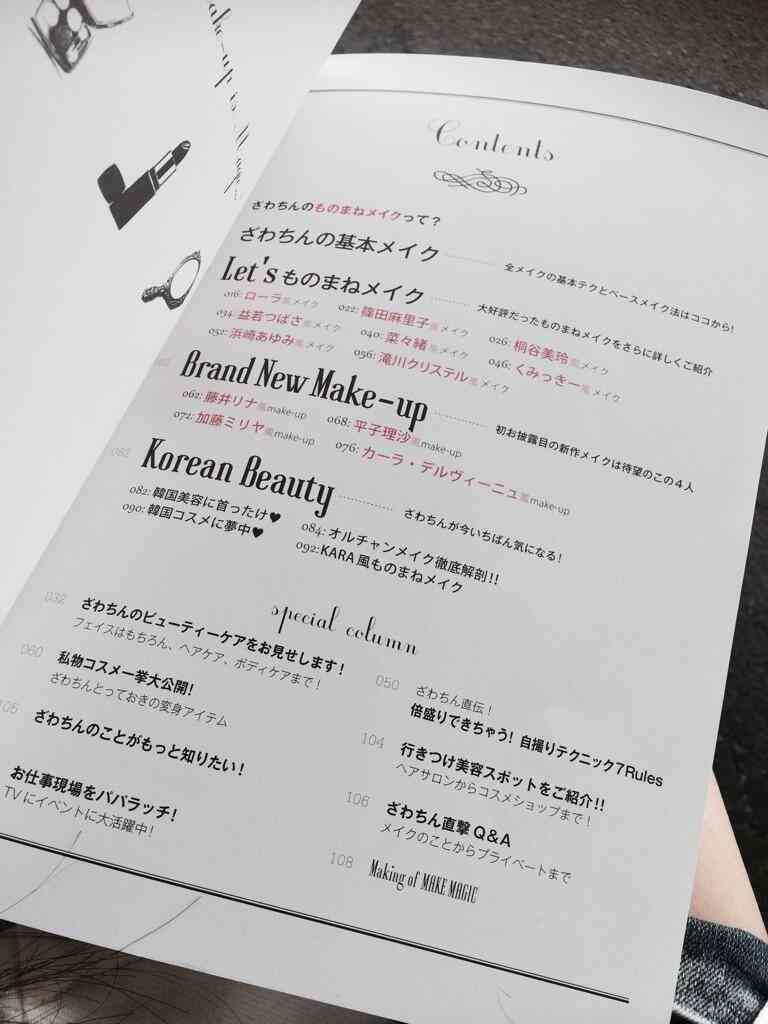 make-up is Magic
Contents
ざわちんのものまねメイクって?
ざわちんの基本メイク 全メイクの基本テクとベースメイク法はココから!
Let'sものまねメイク 大好評だったものまねメイクをさらに詳しくご紹介
016: ローラ風メイク 022: 篠田麻里子風メイク 026: 桐谷美玲風メイク
034: 益若つばさ風メイク 040: 菜々緒風メイク 046: くみっきー風メイク
052: 浜崎あゆみ風メイク 056: 滝川クリステル風メイク
Brand New Make-up 初お披露目の新作メイクは待望のこの4人
062: 藤井リナ風make-up 068: 平子理沙風make-up
072: 加藤ミリヤ風make-up 076: カーラ・デルヴィーニュ風make-up
081 Korean Beauty ざわちんが今いちばん気になる!
082: 韓国美容に首ったけ♥ 084: オルチャンメイク徹底解剖!!
090: 韓国コスメに夢中♥ 092: KARA風ものまねメイク
special column
032 ざわちんのビューティーケアをお見せします!
フェイスはもちろん、ヘアケア、ボディケアまで!
060 私物コスメ一挙大公開!
ざわちんとっておきの変身アイテム
105 ざわちんのことがもっと知りたい!
お仕事現場をパパラッチ!
TVにイベントに大活躍中!
050 ざわちん直伝!
倍盛りできちゃう! 自撮りテクニック7Rules
104 行きつけ美容スポットをご紹介!!
ヘアサロンからコスメショップまで!
106 ざわちん直撃Q&A
メイクのことからプライベートまで
108 Making of MAKE MAGIC